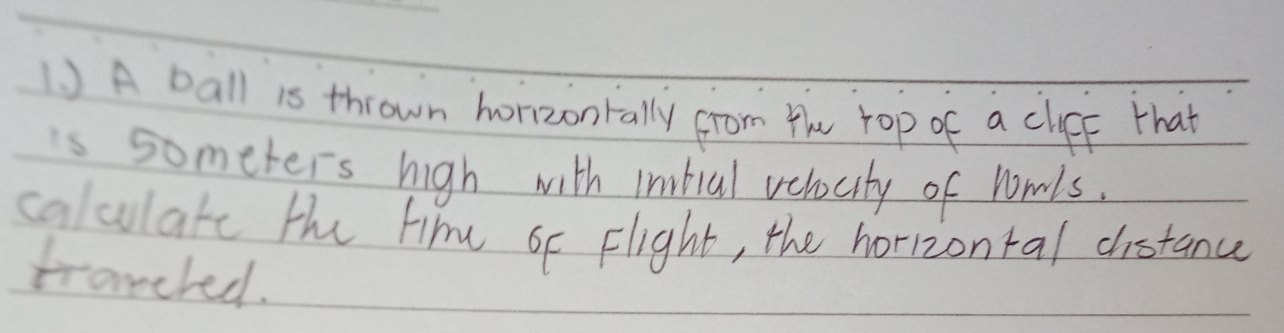 1.) A ball is thrown horizontally from the top of a cliff that
is 50meters high with initial velocity of 10m/s.
calculate the time of flight, the horizontal distance
traveled.